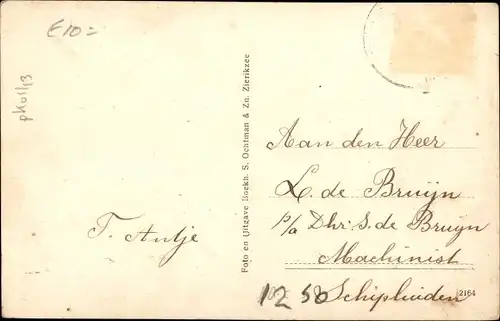 E10=
pkv1/13
T. Antje
Foto en Uitgave Boekh. S. Ochtman & Zn. Zierikzee
Aan den Heer
L. de Bruijn
p/a Dhr. S. de Bruyn
Machinist
Schipluiden
12 50
2164